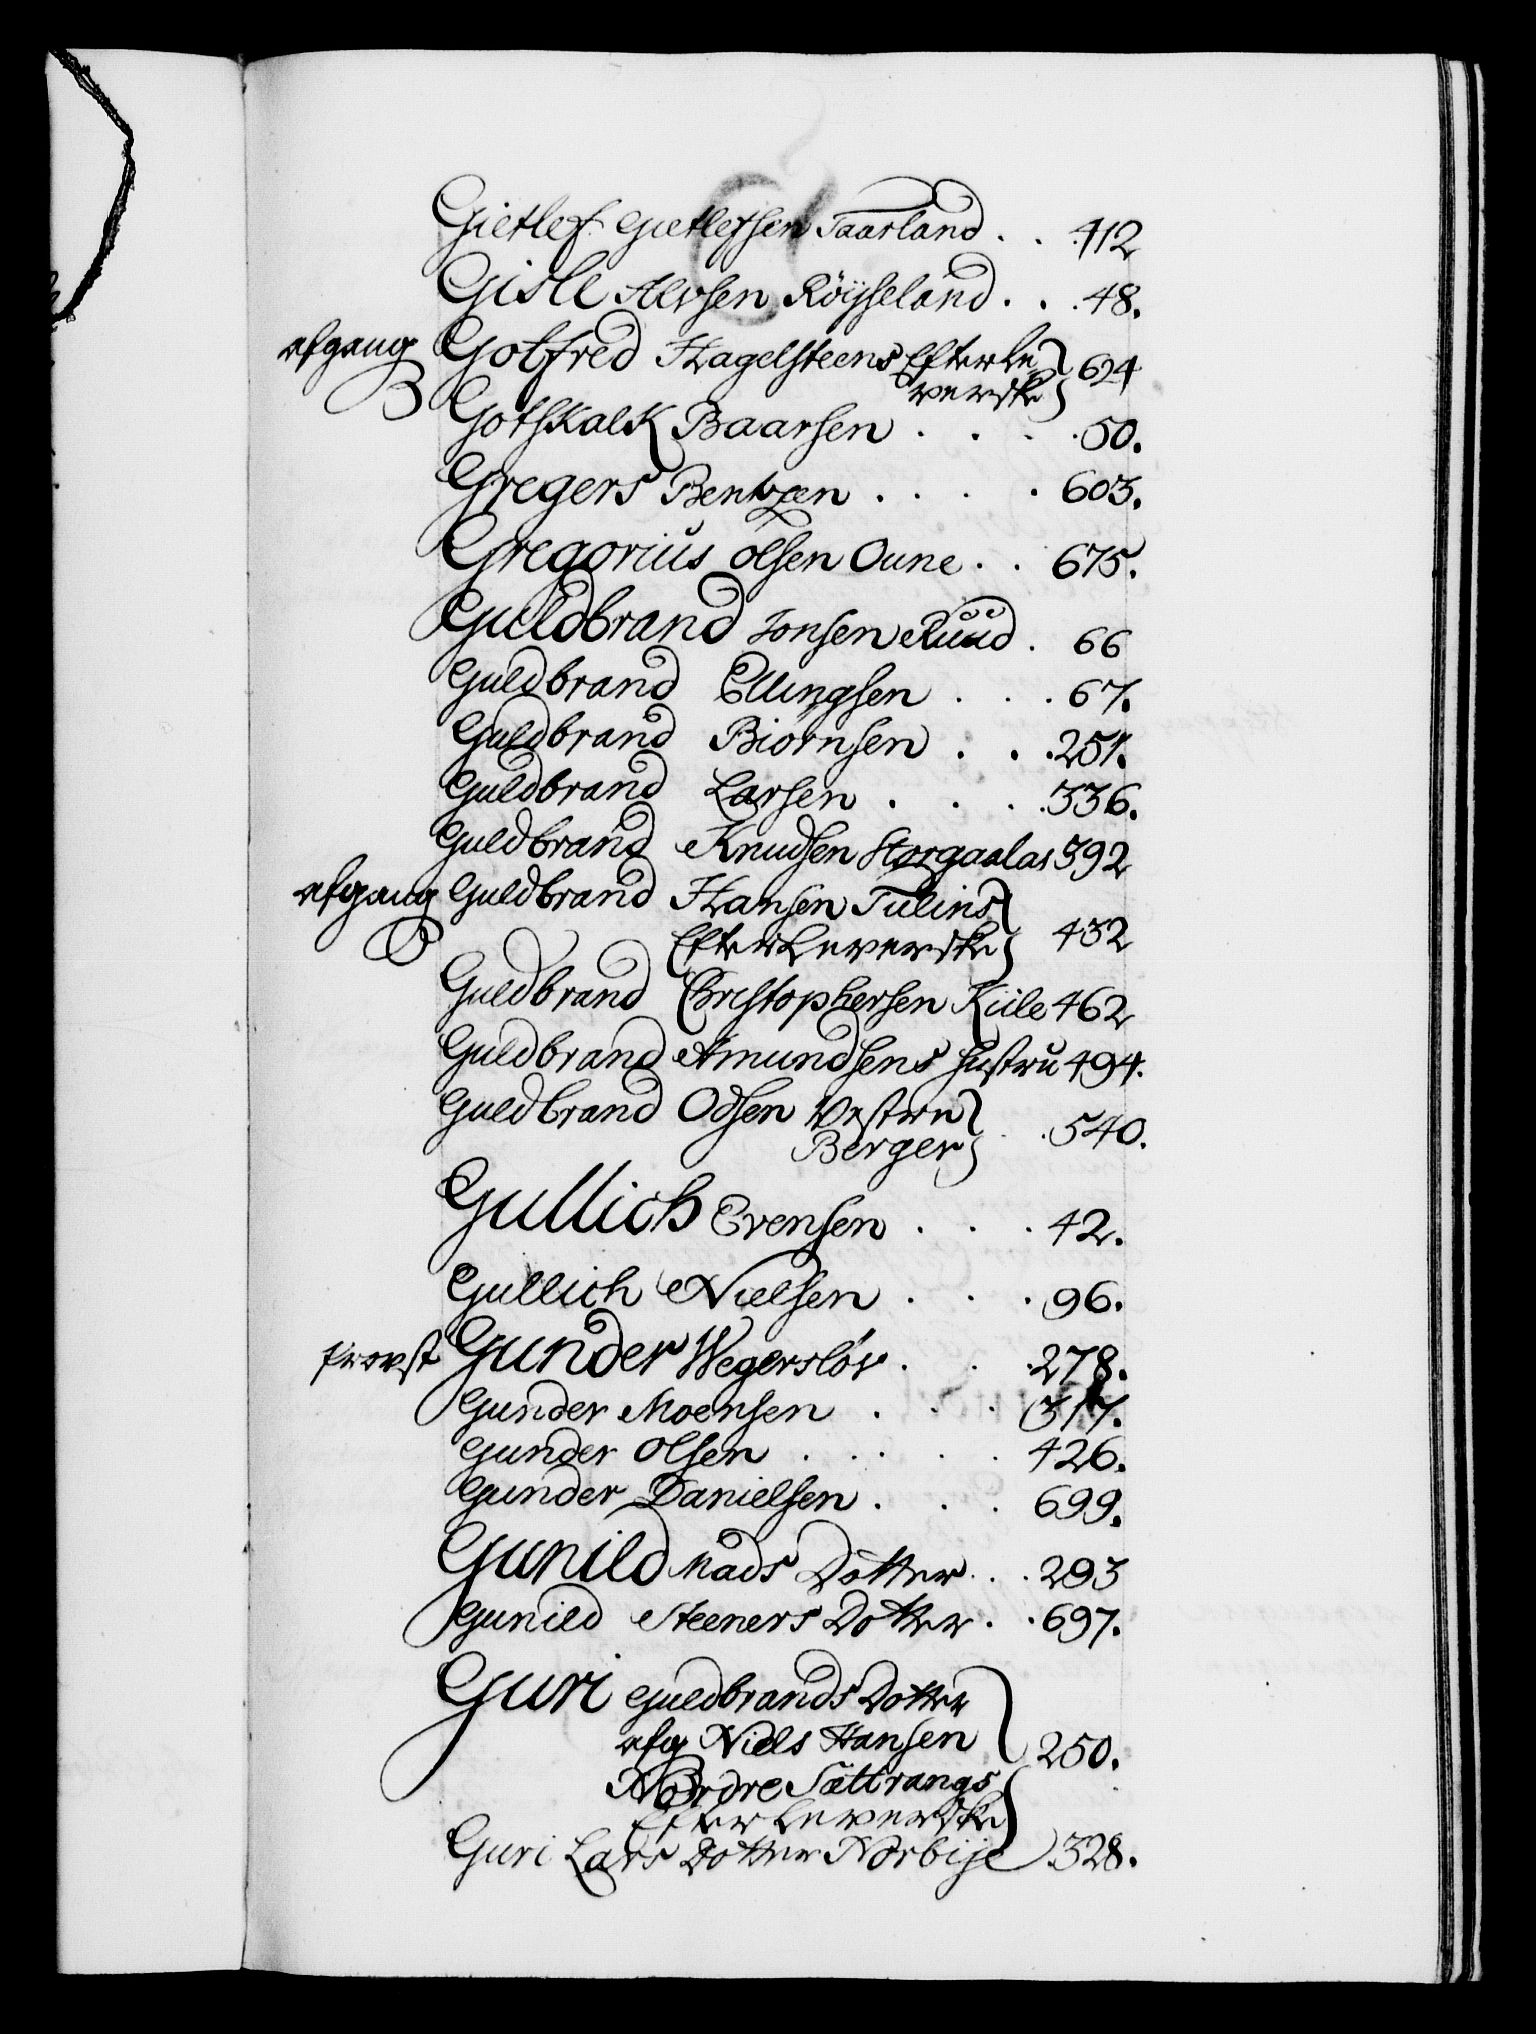 Gietlef Gietlefsen Taarland . . 412
Gisle Alvsen Röÿseland . . . 48.
afgang Gotfred Hagelsteens Efterle
verske 624
Gotskalk Baarsen . . . . 50.
Gregers Bentzen . . . . 603.
Gregorius Olsen Oune . . 675.
Guldbrand Jonsen Ruud . 66
Guldbrand Ellingsen . . . 67.
Guldbrand Biørnsen . . . 251.
Guldbrand Larsen . . . 336.
Guldbrand Knudsen Storgaalas 392
afgang Guldbrand Hansen Tulins
Efterleverske 432
Guldbrand Christophersen Kiile 462
Guldbrand Amundsens Hustru 494.
Guldbrand Odsen Vestre
Berger . . 540.
Gullich Evensen . . . 42.
Gullich Nielsen . . . 96.
Provst Gunder Wegersløv . . . 278.
Gunder Moensen . . . 317.
Gunder Olsen . . . . . 426.
Gunder Danielsen . . . 699.
Gunild Mads Dotter . . . 293
Gunild Steeners Dotter . . 697.
Guri Guldbrands Dotter
afg Niels Hansen
250.
Nordre Sættrangs
Efterleverske
Guri Lars Dotter Norbÿe 328.